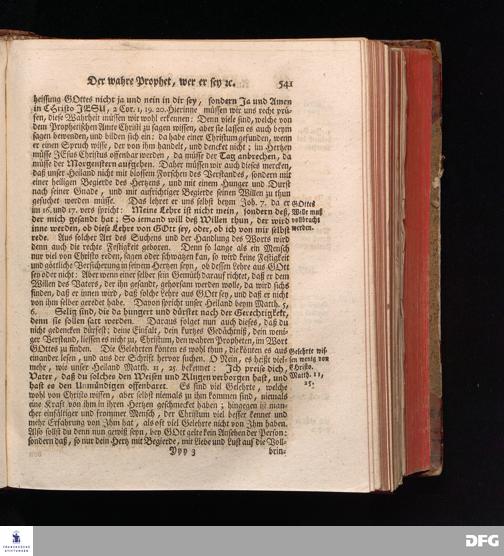 Der wahre Prophet, wer er sey ꝛc. 541
heissung GOttes nicht ja und nein in dir sey, sondern Ja und Amen
in CHristo JESU, 2 Cor. 1, 19. 20. Hierinne müssen wir uns recht prü-
fen, diese Wahrheit müssen wir wohl erkennen: Denn viele sind, welche von
dem Prophetischen Amte Christi zu sagen wissen, aber sie lassen es auch beym
sagen bewenden, und bilden sich ein: da habe einer Christum gefunden, wenn
er einen Spruch wisse, der von ihm handelt, und dencket nicht; im Hertzen
müsse JEsus Christus offenbar werden, da müsse der Tag anbrechen, da
müsse der Morgenstern aufgehen. Daher müssen wir auch dieses mercken,
daß unser Heiland nicht mit blossem Forschen des Verstandes, sondern mit
einer heiligen Begierde des Hertzens, und mit einem Hunger und Durst
nach seiner Gnade, und mit aufrichtiger Begierde seinen Willen zu thun
gesuchet werden müsse. Das lehret er uns selbst beym Joh. 7. da er
im 16. und 17. vers spricht: Meine Lehre ist nicht mein, sondern deß,
der mich gesandt hat; So iemand will deß Willen thun, der wird
inne werden, ob diese Lehre von GOtt sey, oder, ob ich von mir selbst
rede. Aus solcher Art des Suchens und der Handlung des Worts wird
denn auch die rechte Festigkeit geboren. Denn so lange als ein Mensch
nur viel von Christo reden, sagen oder schwatzen kan, so wird keine Festigkeit
und göttliche Versicherung in seinem Hertzen seyn, ob dessen Lehre aus GOtt
sey oder nicht: Aber wenn einer selber sein Gemüth darauf richtet, daß er dem
Willen des Vaters, der ihn gesandt, gehorsam werden wolle, da wird sichs
finden, daß er innen wird, daß solche Lehre aus GOtt sey, und daß er nicht
von ihm selber geredet habe. Davon spricht unser Heiland beym Matth. 5,
6. Selig sind, die da hungert und dürstet nach der Gerechtigkeit,
denn sie sollen satt werden. Daraus folget nun auch dieses, daß du
nicht gedencken dürfest; deine Einfalt, dein kurtzes Gedächtniß, dein weni-
ger Verstand, liessen es nicht zu, Christum, den wahren Propheten, im Wort
GOttes zu finden. Die Gelehrten könten es wohl thun, die könten es aus
einander lesen, und aus der Schrift hervor suchen. O Nein, es heist viel-
mehr, wie unser Heiland Matth. 11, 25. bekennet: Ich preise dich,
Vater, daß du solches den Weisen und Klugen verborgen hast, und
hast es den Unmündigen offenbaret. Es sind viel Gelehrte, welche
wohl von Christo wissen, aber selbst niemals zu ihm kommen sind, niemals
eine Kraft von ihm in ihren Hertzen geschmecket haben; hingegen ist man-
cher einfältiger und frommer Mensch, der Christum viel besser kennet und
mehr Erfahrung von Ihm hat, als oft viel Gelehrte nicht von Ihm haben.
Also sollst du denn nun gewiß seyn, bey GOtt gelte kein Ansehen der Person:
sondern daß, so nur dein Hertz mit Begierde, mit Liebe und Lust auf die Voll-
Yyy 3 brin-
GOttes
Wille muß
vollbracht
werden.
Gelehrte wis-
sen wenig von
Christo.
Matth. 11,
25.
FRANCKESCHE
STIFTUNGEN
DFG